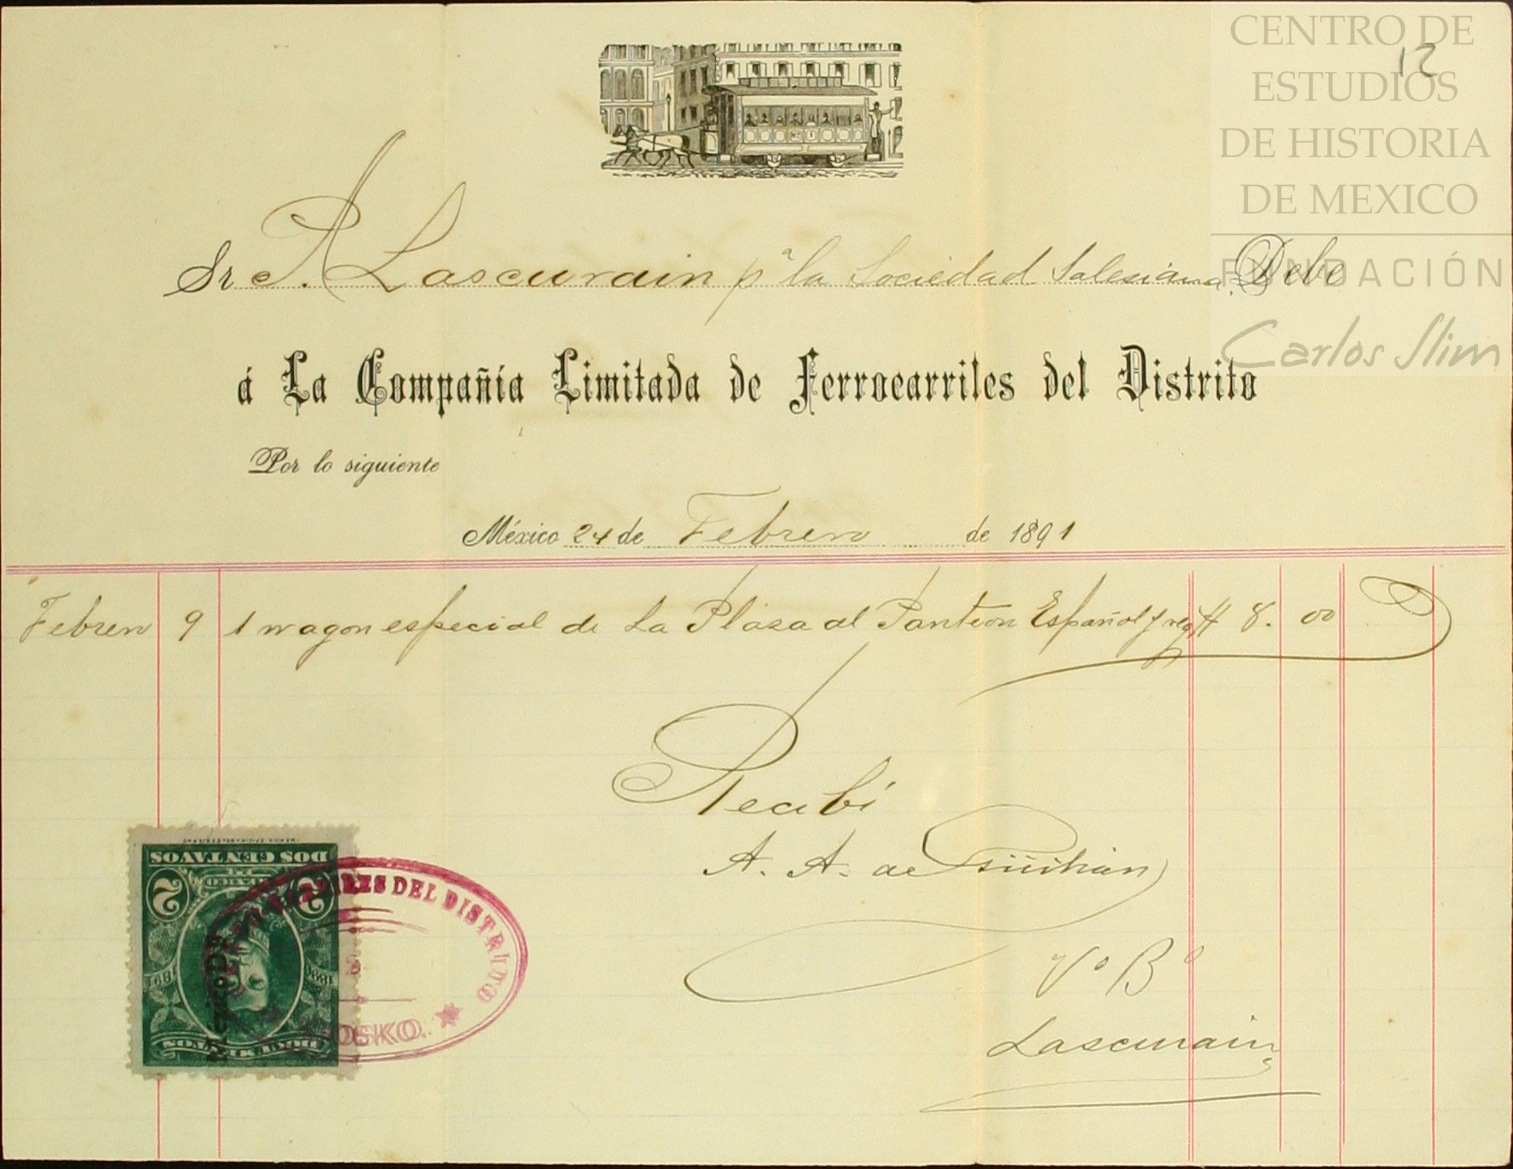 CENTRO DE
ESTUDIOS
DE HISTORIA
DE MEXICO
FUNDACIÓN
Carlos Slim
12
Sr P. Lascurain pª la Sociedad Salesiana Debe
á La Compañía Limitada de Ferrocarriles del Distrito
Por lo siguiente
México 24 de Febrero de 1891
Febrero 9 1 wagon especial de La Plaza al Panteon Español y reg $ 8. 00
Recibí
A. A. de
Vº Bº
Lascurain
DOS CENTAVOS
2 2
DOCUMENTOS
FERROCARRILES DEL DISTRITO
KIOSKO.